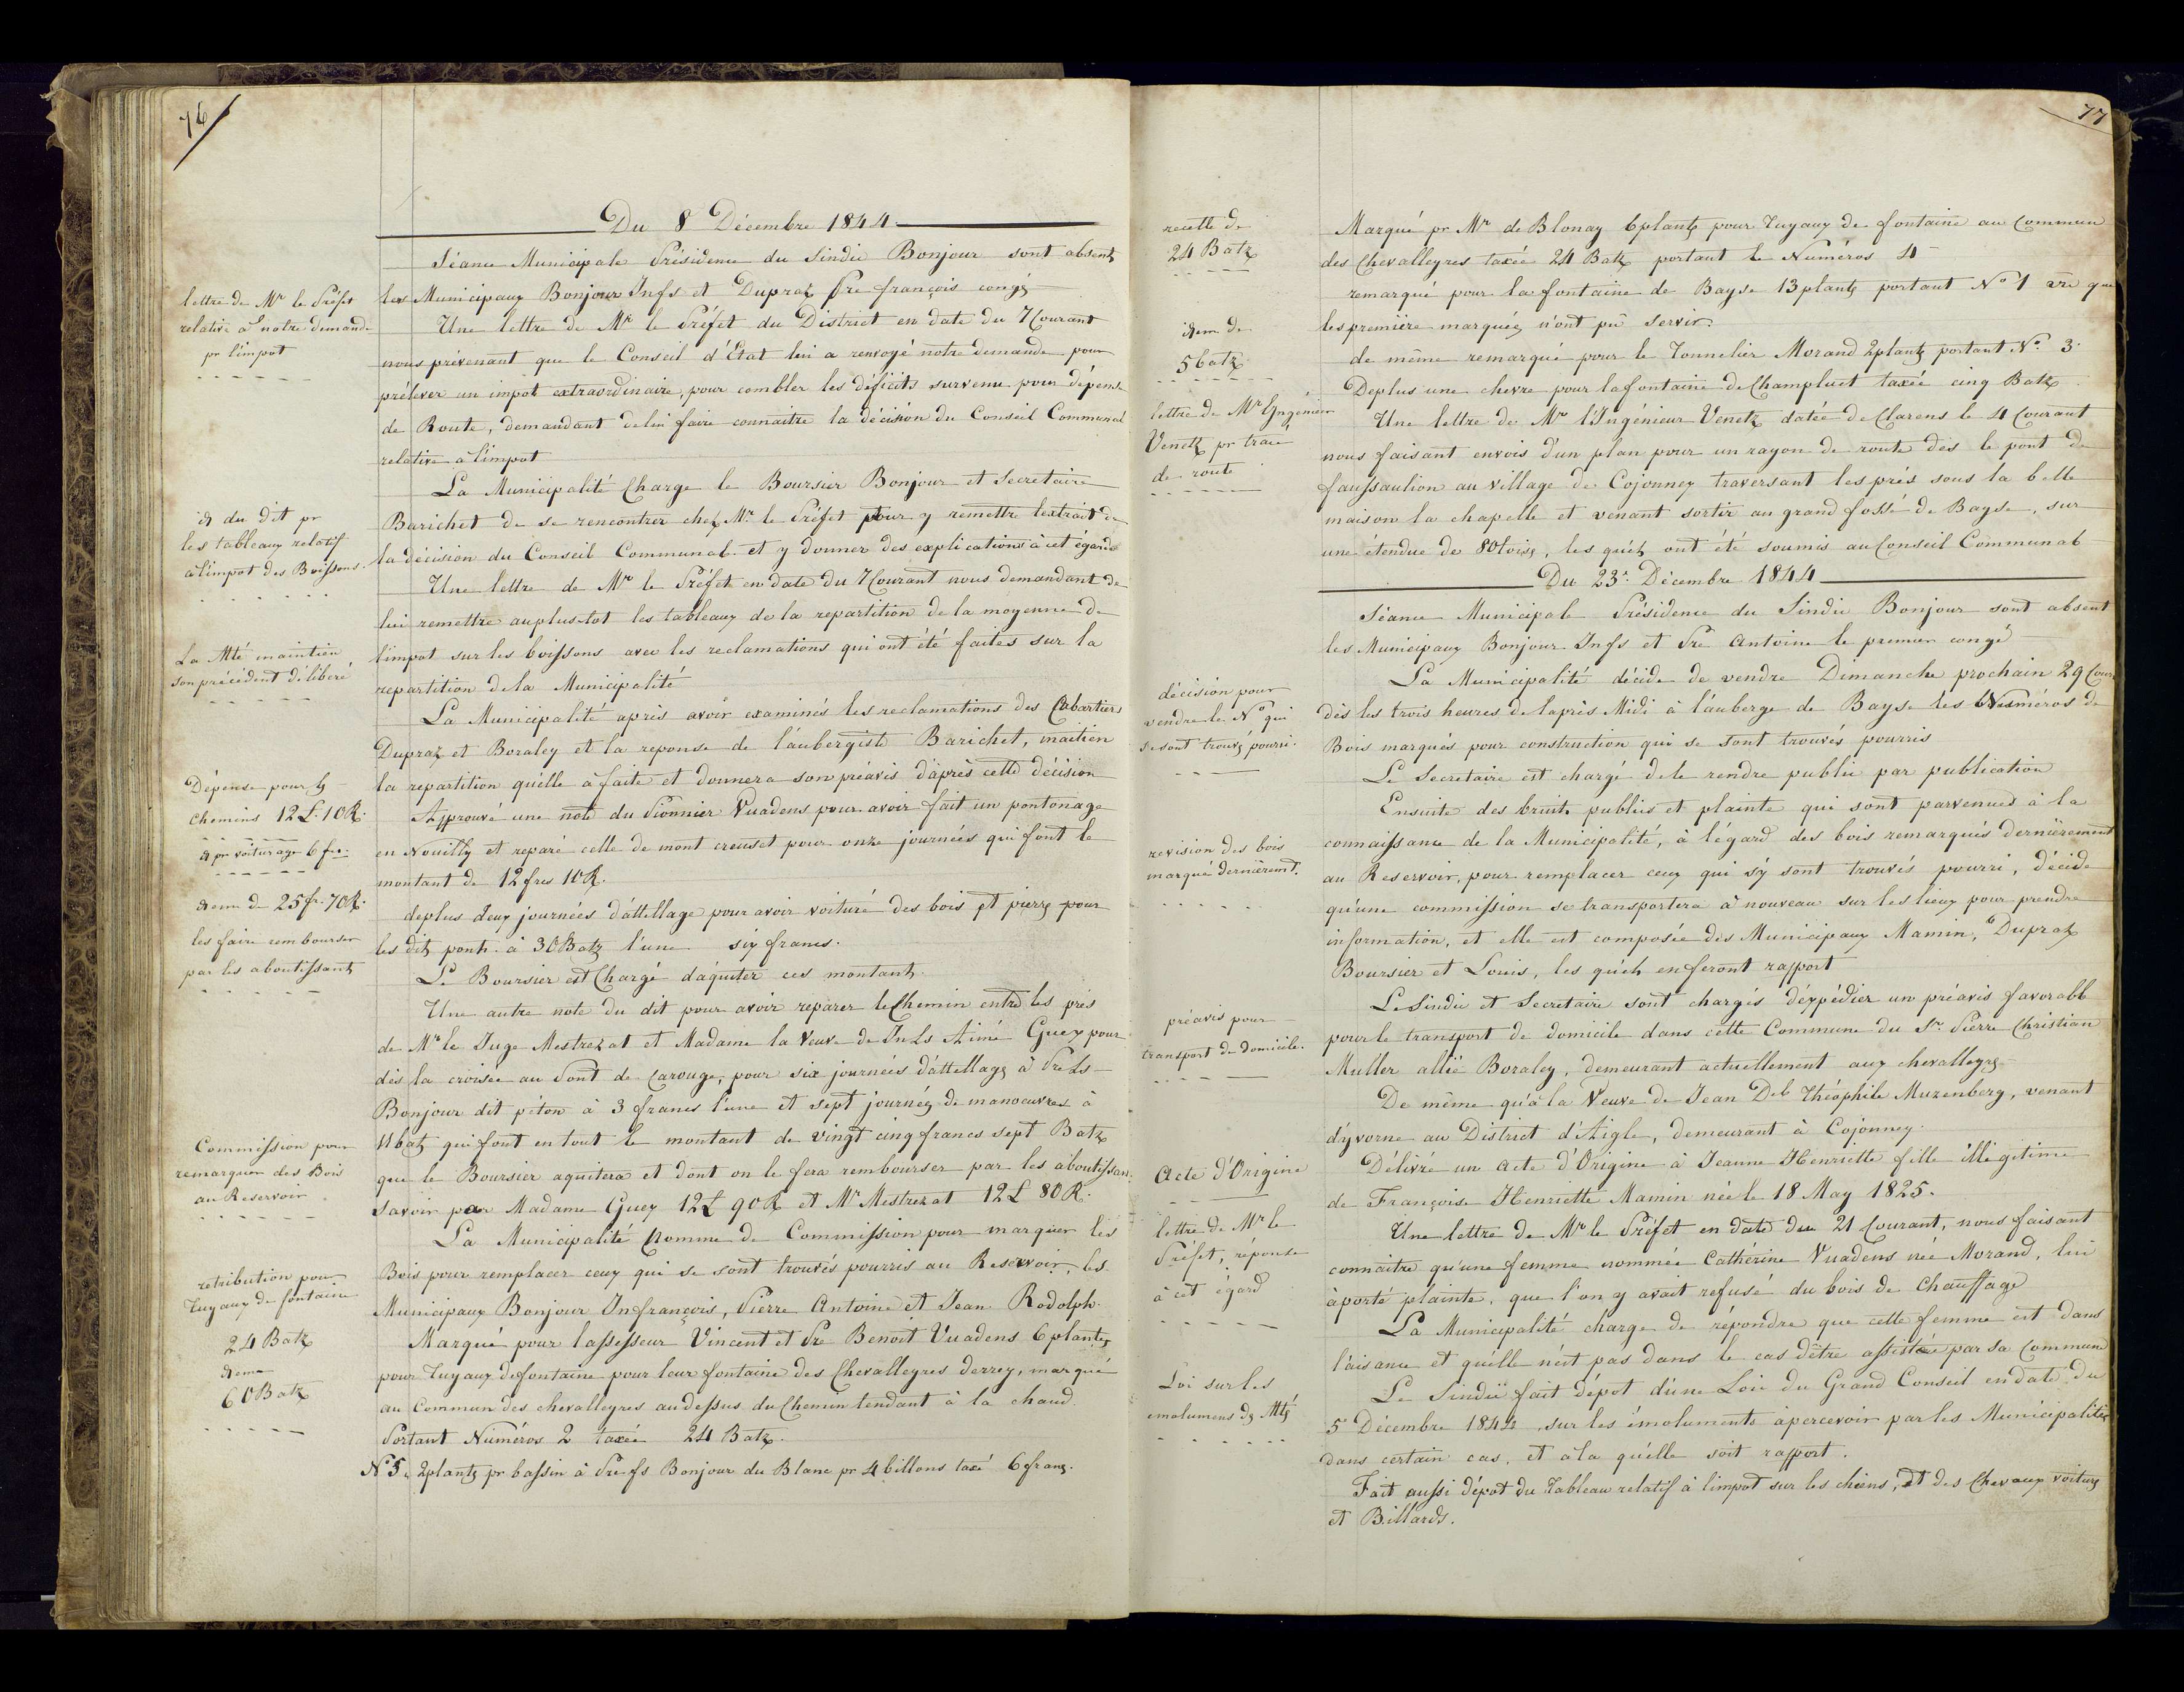 76
Du 8 Décembre 1844.
Séance Municipale Présidence du Sindic Bonjour sont absents
les Municipaux Bonjour Jnfs et Dupraz Pre françois congé
Une lettre de Mr le Préfet du District en date du 7 Courant
nous prévenant que le Conseil d'Etat lui a renvoyé notre demande pour
prélever un impot extraordinaire, pour combler les déficits survenu pour dépense
de Route, demandant de lui faire connaitre la décision du Conseil Communal
relative à l'impot
La Municipalité Charge le Boursier Bonjour et Secretaire
Barichet de se rencontrer chez Mr. le Préfet pour y remettre l'extrait de
la décision du Conseil Communal et y donner des explications à cet égard
Une lettre de Mr le Préfet en date du 7 Courant nous demandant de
lui remettre auplus-tot les tableaux de la repartition de la moyenne de
l'impot sur les boissons avec les reclamations qui ont été faites sur la
repartition de la Municipalité
La Municipalité après avoir examinés les reclamations des Cabartiers
Dupraz et Boraley et la reponse de l'aubergiste Barichet, maitien
la repartition qu'elle à faite et donnera son préavis d'après cette décision
Approuvé une note du Pionnier Vuadens pour avoir fait un pontonage
en Nouilly et reparé celle de mont creuset pour onze journées qui font le
montant de 12 fres 10 R.
deplus deux journées d'attellage pour avoir voituré des bois et pierre pour
les dit ponts à 30 Batz l'une six francs.
Le Boursier est Chargé d'aquiter ces montant.
Une autre note du dit pour avoir reparer le Chemin entre les prés
de Mr le Juge Mestrezat et Madame la Veuve de JnLs Aimé Guex pour
dès la croisée au Pont de Carouge, pour six journées d'attellage à PreLs
Bonjour dit piton à 3 francs l'une et sept journées de manoeuvres à
11 batz qui font en tout le montant de vingt cinq francs sept Batz
que le Boursier aquitera et dont on le fera rembourser par les aboutissan
savoir par Madame Guex 12 L 90 R et Mr Mestrezat 12 L 80 R.
La Municipalité Nomme de Commission pour marquer les
Bois pour remplacer ceux qui se sont trouvés pourris au Reservoir, les
Municipaux Bonjour Jnfrançois, Pierre Antoine et Jean Rodolph.
Marqué pour l'assesseur Vincent et Pre Benoit Vuadens 6 plantes
pour Tuyaux de fontaine pour leur fontaine des Chevalleyres derrey, marqué
au Commun des chevalleyres au dessus du Chemin tendant à la chaud
Portant Numéros 2 taxée 24 Batz.
No 5. 2 plantes pr bassin à Pre-fs Bonjour du Blanc pr 4 billons taxé 6 francs.
lettre de Mr le Préfet
relative à notre demande
pr l'impot
id du dit pr
les tableaux relatif
à l'impot des Boissons.
La Mté maintien
son précédent délibéré
Dépense pour les
chemins 12 L. 10 R.
id pr voiturage 6 frs.
idem de 25 fr. 70 R.
les faire rembourser
par les aboutissants
Commission pour
remarquer des Bois
au Reservoir
retribution pour
Tuyaux de fontaine
24 Batz
idem
60 Batz
77
Marqué pr Mr de Blonay 6 plantes pour Tuyaux de fontaine au Commun
des Chevalleyres taxée 24 Batz portant le Numéros 4
remarqué pour la fontaine de Bayse 13 plantes portant No 1 vre que
les première marquées n'ont pû servir.
de même remarqué pour le Tonnelier Morand 2 plantes portant No. 3.
Deplus une chevre pour la fontaine de Champluet taxée cinq Batz
Une lettre de Mr l'Ingénieur Venetz datée de Clarens le 4 Courant
nous faisant envois d'un plan pour un rayon de route dès le pont de
faussaulion au village de Cojonney traversant les prés sous la belle
maison la chapelle et venant sortir au grand fossé de Bayse, sur
une étendue de 80 toises, les quels ont été soumis au Conseil Communal
Du 23e. Décembre 1844
Séance Municipale Présidence du Sindic Bonjour sont absent
les Municipaux Bonjour Jnfs et Pre Antoine le premier congé
La Municipalité décide de vendre Dimanche prochain 29 Cour
dès les trois heures de l'après Midi à l'auberge de Bayse les Numéros de
Bois marqués pour construction qui se sont trouvés pourris
Le Secretaire est chargé de le rendre public par publication
Ensuite des bruits publics et plainte qui sont parvenues à la
connaissance de la Municipalité, à l'égard des bois remarqués dernièrement
au Reservoir, pour remplacer ceux qui s'y sont trouvés pourri, décide
qu'une commission se transportera à nouveau sur les lieux pour prendre
information, et elle est composée des Municipaux Mamin, Dupraz
Boursier et Louis, les quels en feront rapport
Le Sindic et Secretaire sont chargés d'expédier un préavis favorabl
pour le transport de domicile dans cette Commune du Sr. Pierre Christian
Muller allié Boraley, demeurant actuellement aux chevalleyres
De même qu'à la Veuve de Jean Del Théophile Muzenberg, venant
d'yvorne au District d'Aigle, demeurant à Cojonney.
Délivré un acte d'Origine à Jeanne Henriette fille illégitime
de Françoise Henriette Mamin née le 18 May 1825.
Une lettre de Mr le Préfet en date du 21 Courant, nous faisant
connaitre qu'une femme nommée Catherine Vuadens née Morand, lui
à porté plainte, que l'on y avait refusé du bois de chauffage
La Municipalité charge de répondre que cette femme est dans
l'aisance et qu'elle n'est pas dans le cas d'être assistée par sa Commune
Le Sindic fait dépot d'une Loie du Grand Conseil en date du
5e Décembre 1844, sur les émoluments à percevoir par les Municipalités
dans certain cas, et à la qu'elle soit rapport.
Fait aussi dépot du Tableau relatif à l'impot sur les chiens, et des Chevaux voitures
et Billards.
recette de
24 Batz
idem de
5 batz
lettre de Mr Yngénieur
Venetz pr trace
de route
décision pour
vendre le No qui
se sont trouvés pourri.
revision des bois
marqué dernièremt.
préavis pour
transport de domicile.
Acte d'Origine
lettre de Mr le
Préfet, réponse
à cet égard
Loi sur les
emolumens des Mtés